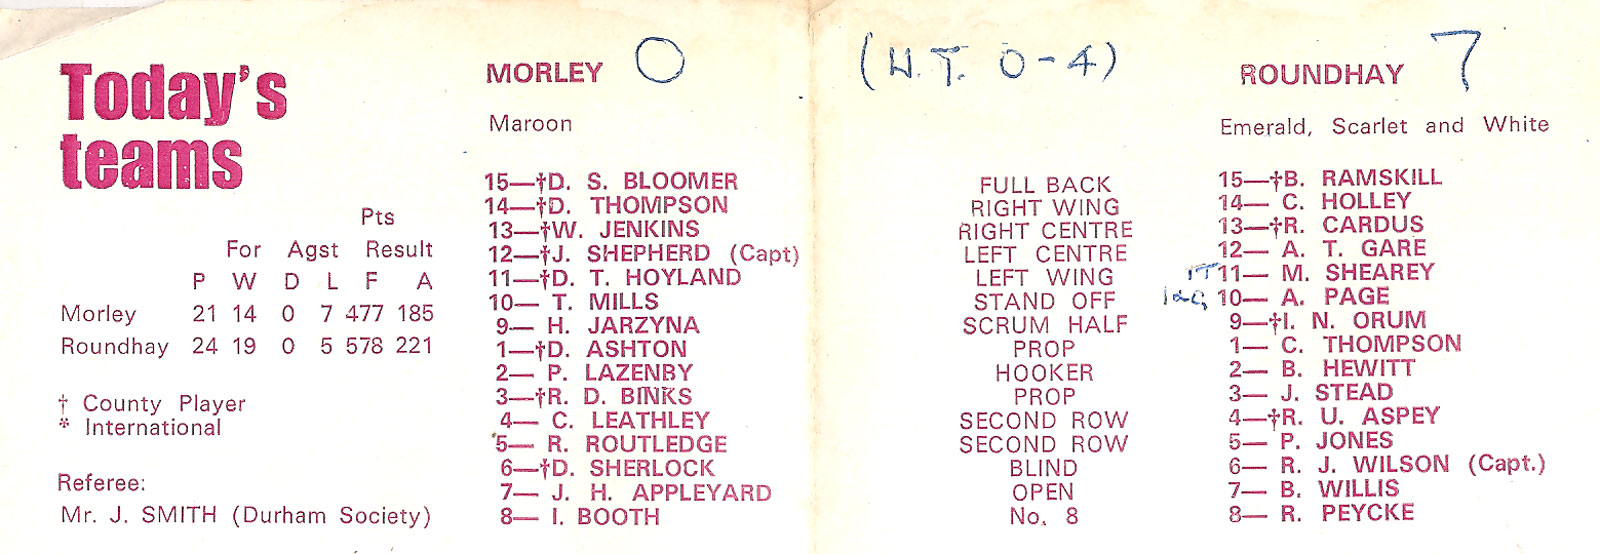 Today's
teams
Pts
For Agst Result
P W D L F A
Morley 21 14 0 7 477 185
Roundhay 24 19 0 5 578 221
† County Player
* International
Referee:
Mr. J. SMITH (Durham Society)
MORLEY 0
Maroon
15—†D. S. BLOOMER
14—†D. THOMPSON
13—†W. JENKINS
12—†J. SHEPHERD (Capt)
11—†D. T. HOYLAND
10— T. MILLS
9— H. JARZYNA
1—†D. ASHTON
2— P. LAZENBY
3—†R. D. BINKS
4— C. LEATHLEY
5— R. ROUTLEDGE
6—†D. SHERLOCK
7— J. H. APPLEYARD
8— I. BOOTH
(H.T. 0-4)
FULL BACK
RIGHT WING
RIGHT CENTRE
LEFT CENTRE
LEFT WING
STAND OFF
SCRUM HALF
PROP
HOOKER
PROP
SECOND ROW
SECOND ROW
BLIND
OPEN
No. 8
ROUNDHAY 7
Emerald, Scarlet and White
15—†B. RAMSKILL
14— C. HOLLEY
13—†R. CARDUS
12— A. T. GARE
1T 11— M. SHEAREY
10— A. PAGE
9—†I. N. ORUM
1— C. THOMPSON
2— B. HEWITT
3— J. STEAD
4—†R. U. ASPEY
5— P. JONES
6— R. J. WILSON (Capt.)
7— B. WILLIS
8— R. PEYCKE